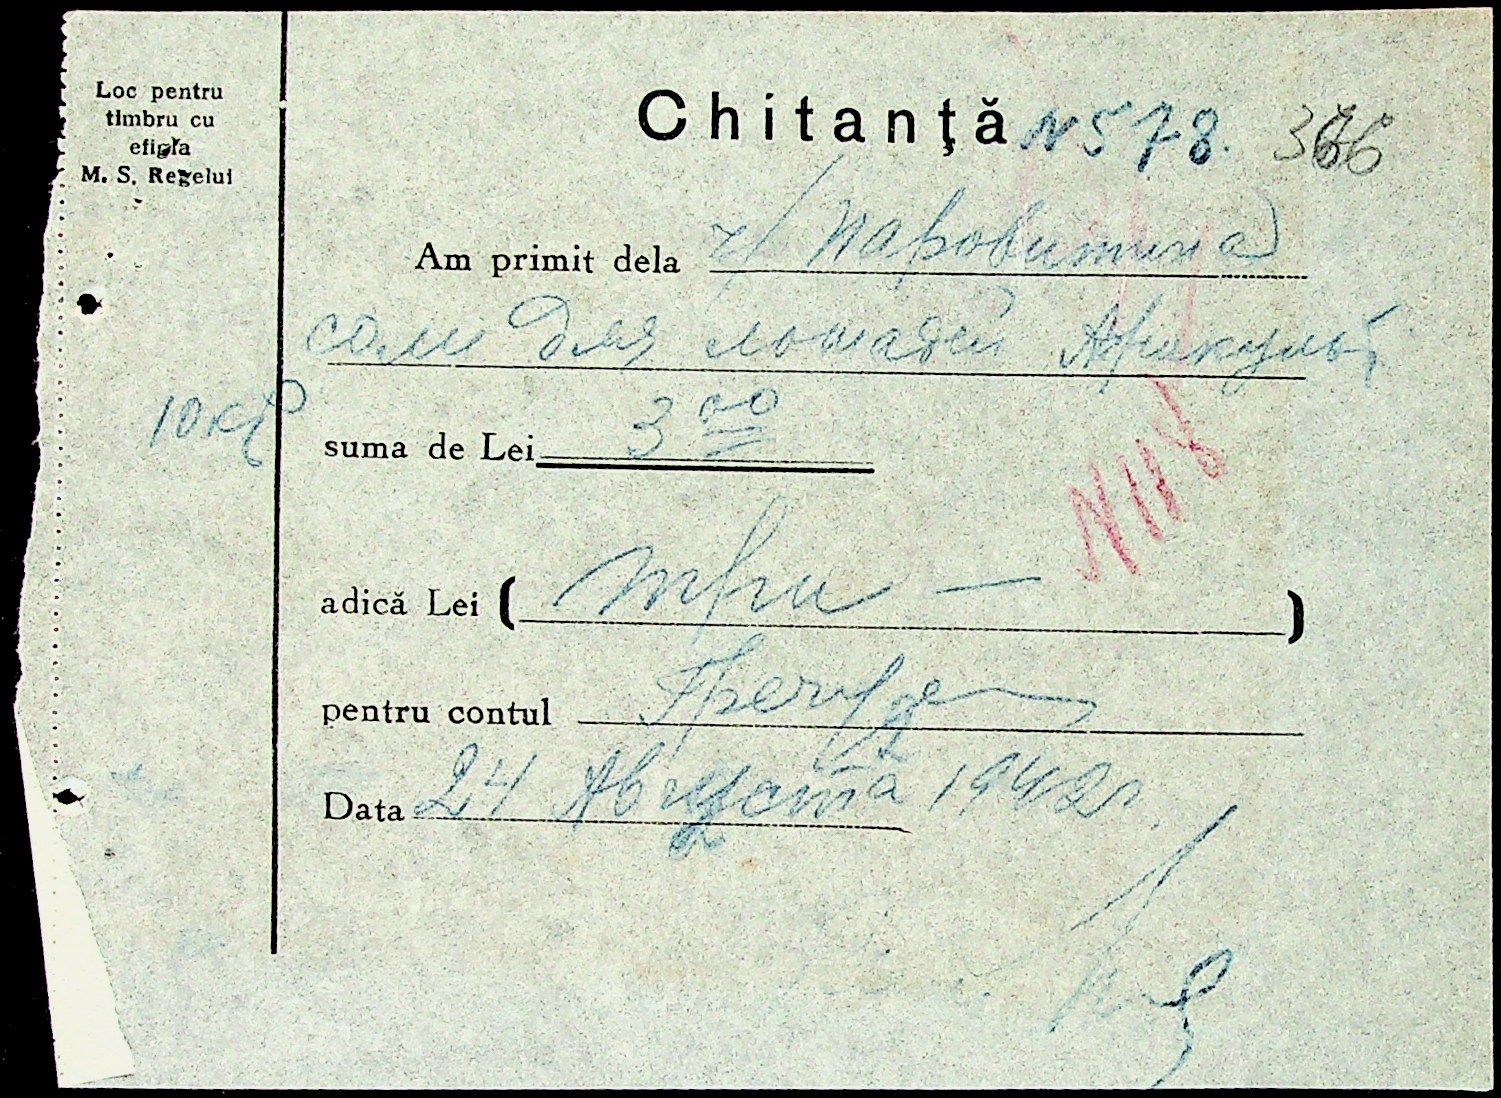 Loc pentru
timbru cu
efigia
M. S. Regelui
Chitanţă N 578. 366
Am primit dela
соли для лошадей
10 кг
suma de Lei 3 00
N 118
adică Lei ( три — )
pentru contul
Data 24 Августа 1942 г.